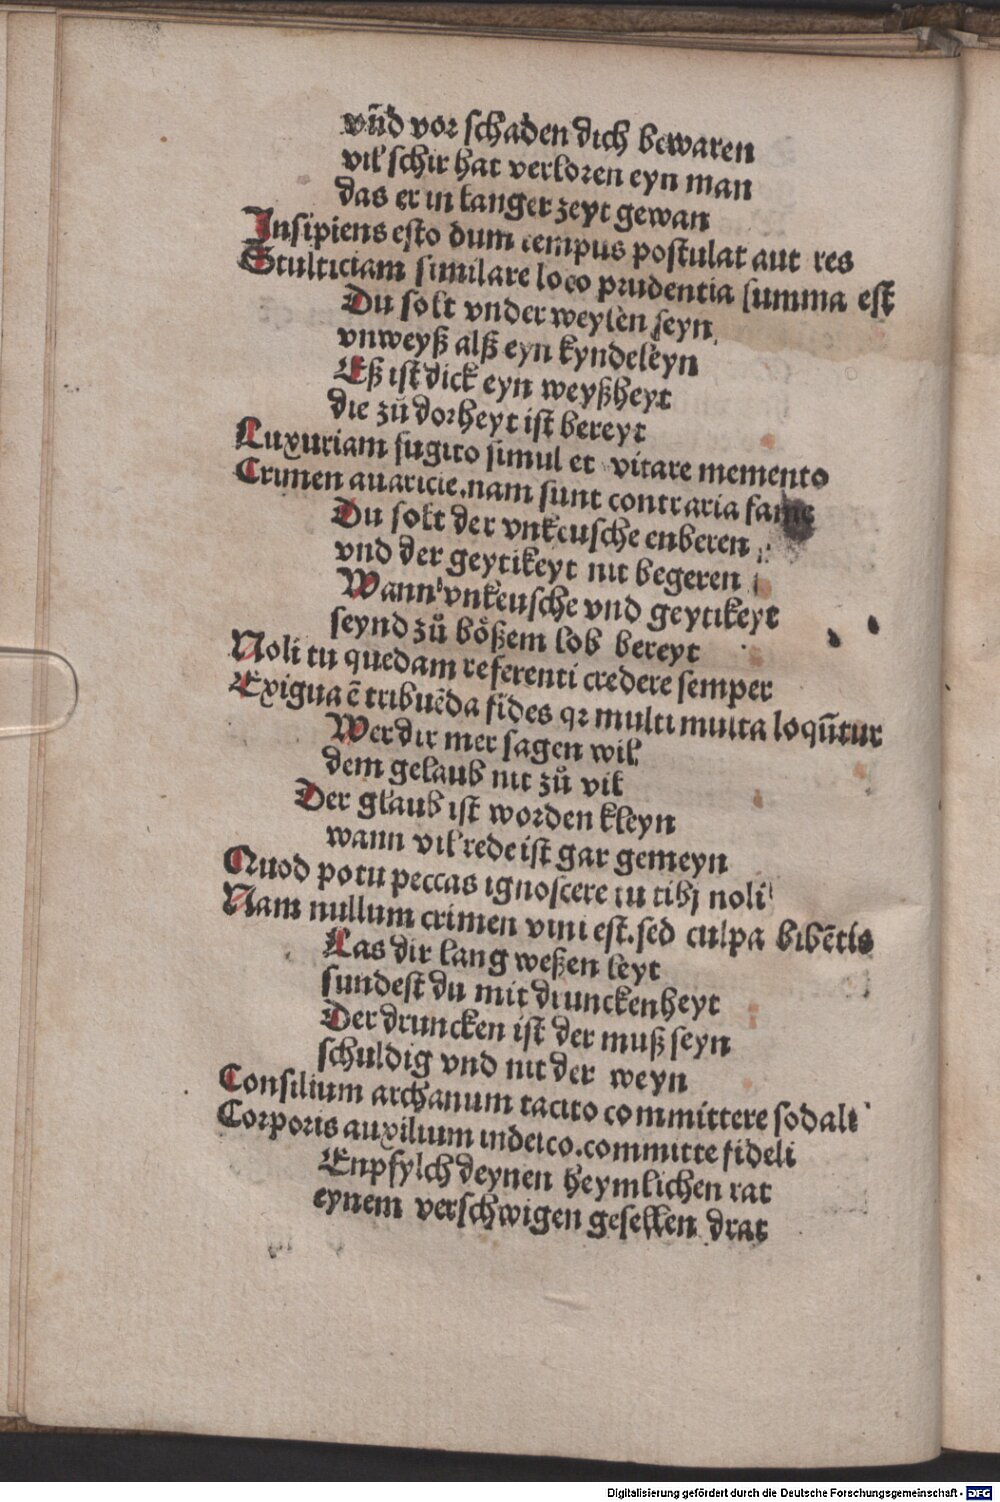 vñd vor schaden dich bewaren
vil schir hat verloren eyn man
das er in langer zeyt gewan
Insipiens esto dum tempus postulat aut res
Stulticiam similare loco prudentia summa est
Du solt vnder weylen seyn
vnweyß alß eyn kyndeleyn
Eß ist dick eyn weyßheyt
die zů dorheyt ist bereyt
Luxuriam fugito simul et vitare memento
Crimen auaricie.nam sunt contraria fame
Du solt der vnkeusche enberen
vnd der geytikeyt nit begeren
Wann vnkeusche vnd geytikeyt
seynd zů bößem lob bereyt
Noli tu quedam referenti credere semper
Exigua ē tribuēda fides qꝛ multi multa loqūtur
Wer dir mer sagen wil
dem gelaub nit zů vil
Der glaub ist worden kleyn
wann vil rede ist gar gemeyn
Quod potu peccas ignoscere tu tibj noli
Nam nullum crimen vini est.sed culpa bibētis
Las dir lang weßen leyt
sundest du mit drunckenheyt
Der druncken ist der muß seyn
schuldig vnd nit der weyn
Consilium archanum tacito committere sodali
Corporis auxilium medico.committe fideli
Enpfylch deynen heymlichen rat
eynem verschwigen gesellen drat
Digitalisierung gefördert durch die Deutsche Forschungsgemeinschaft - DFG